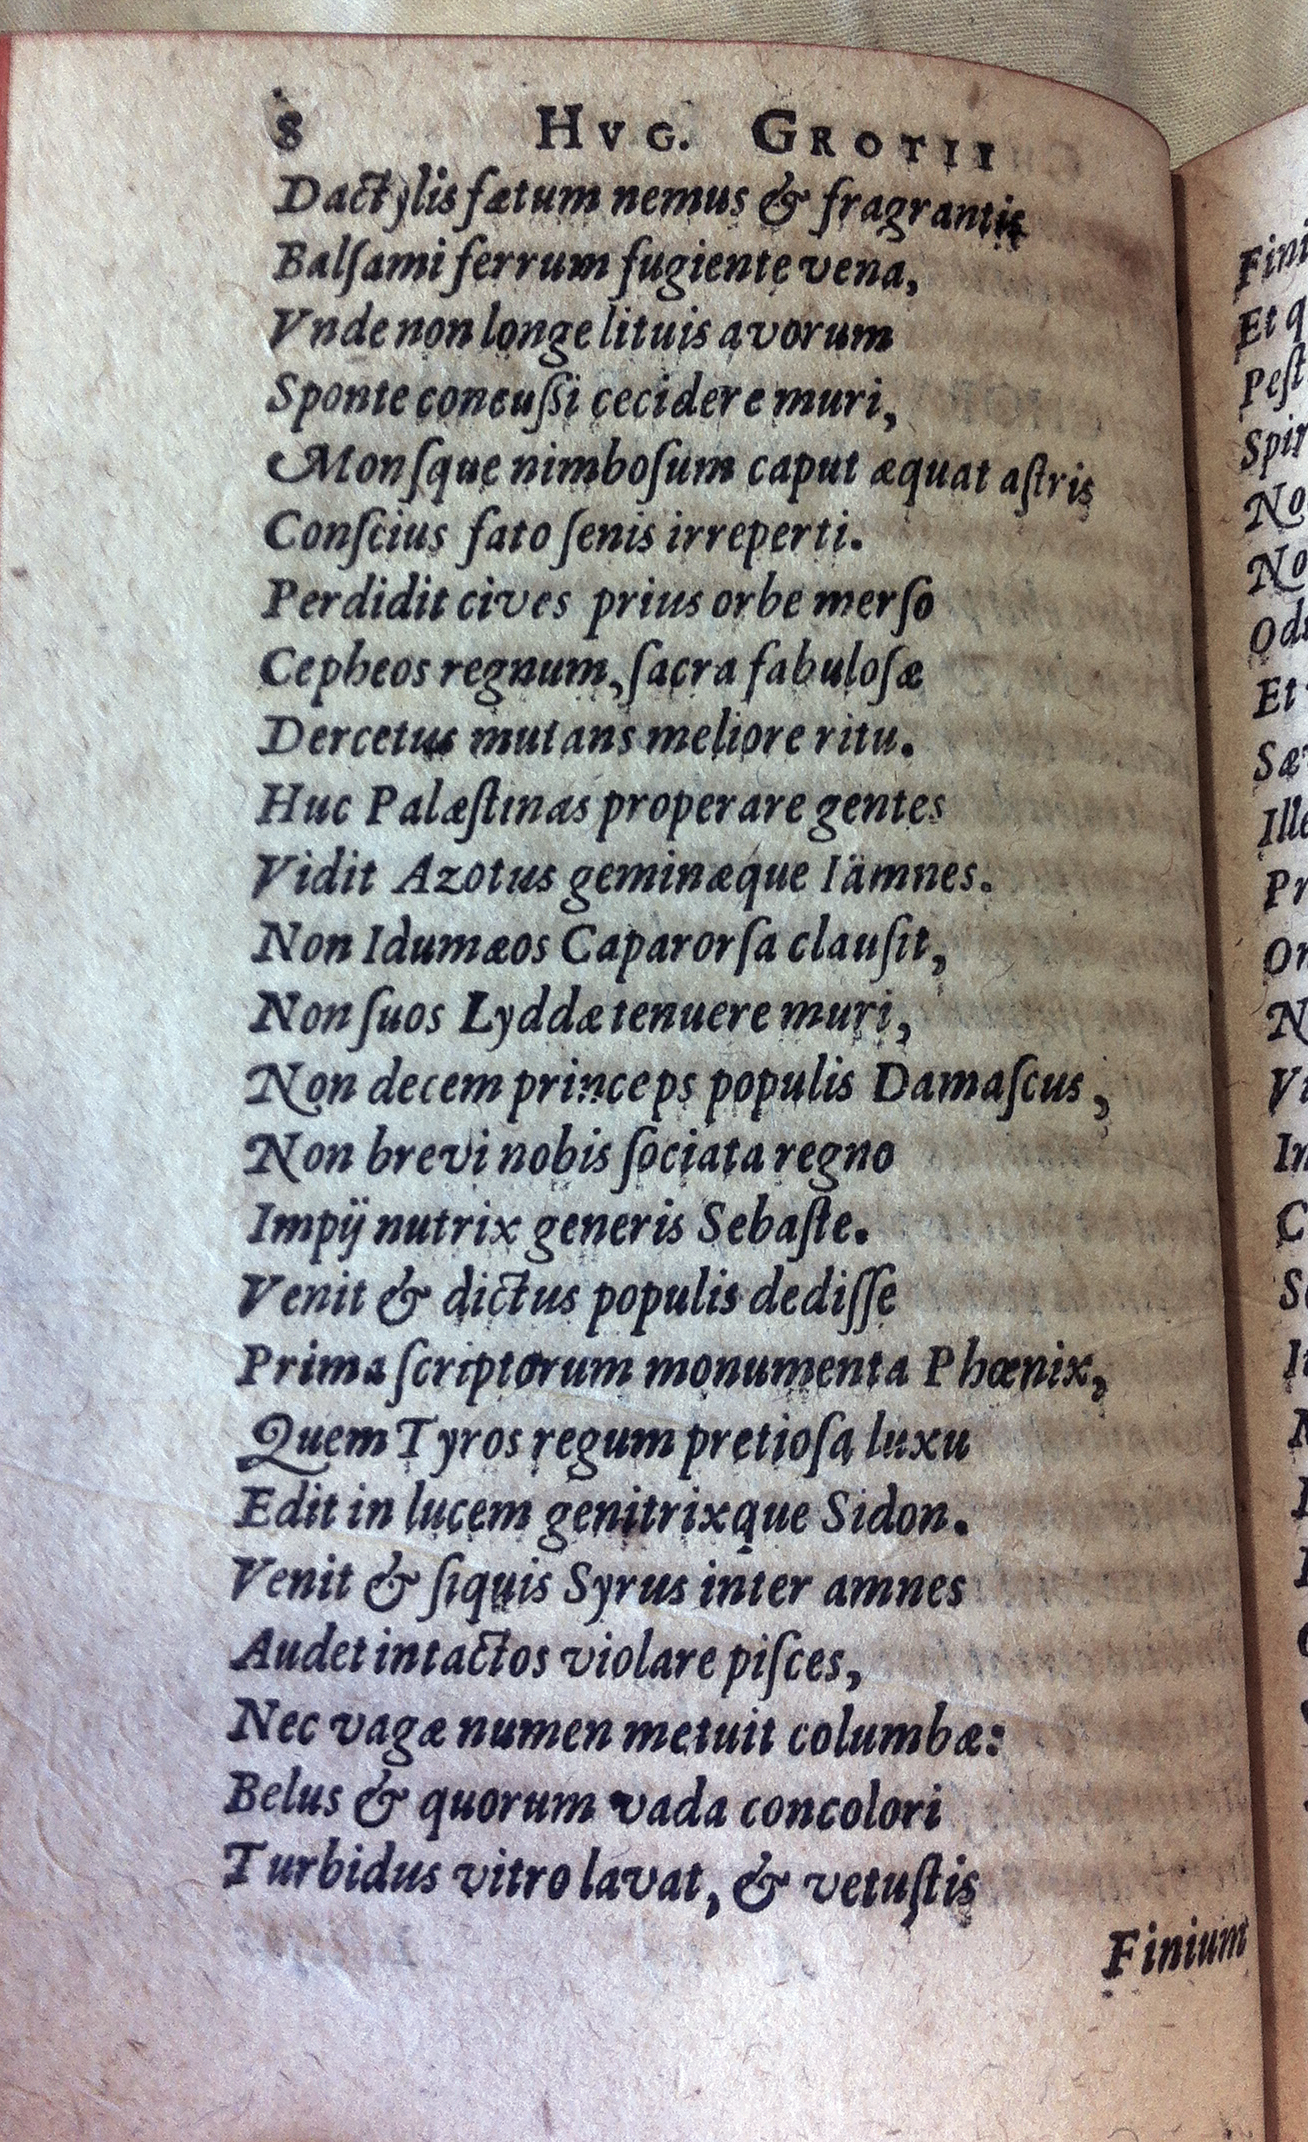 8 HVG. GROTII
Dactylis fætum nemus & fragrantis
Balſami ferrum fugiente vena,
Vnde non longe lituis avorum
Sponte concuſſi cecidere muri,
Monſque nimboſum caput æquat aſtris
Conſcius fato ſenis irreperti.
Perdidit cives prius orbe merſo
Cepheos regnum, ſacra fabuloſæ
Dercetus mutans meliore ritu.
Huc Palæſtinas properare gentes
Vidit Azotus geminæque Iämnes.
Non Idumæos Caparorſa clauſit,
Non ſuos Lyddæ tenuere muri,
Non decem princeps populis Damaſcus,
Non brevi nobis ſociata regno
Impij nutrix generis Sebaſte.
Venit & dictus populis dediſſe
Prima ſcriptorum monumenta Phœnix,
Quem Tyros regum pretioſa luxu
Edit in lucem genitrixque Sidon.
Venit & ſiquis Syrus inter amnes
Audet intactos violare piſces,
Nec vagæ numen metuit columbæ:
Belus & quorum vada concolori
Turbidus vitro lavat, & vetuſtis
Finium